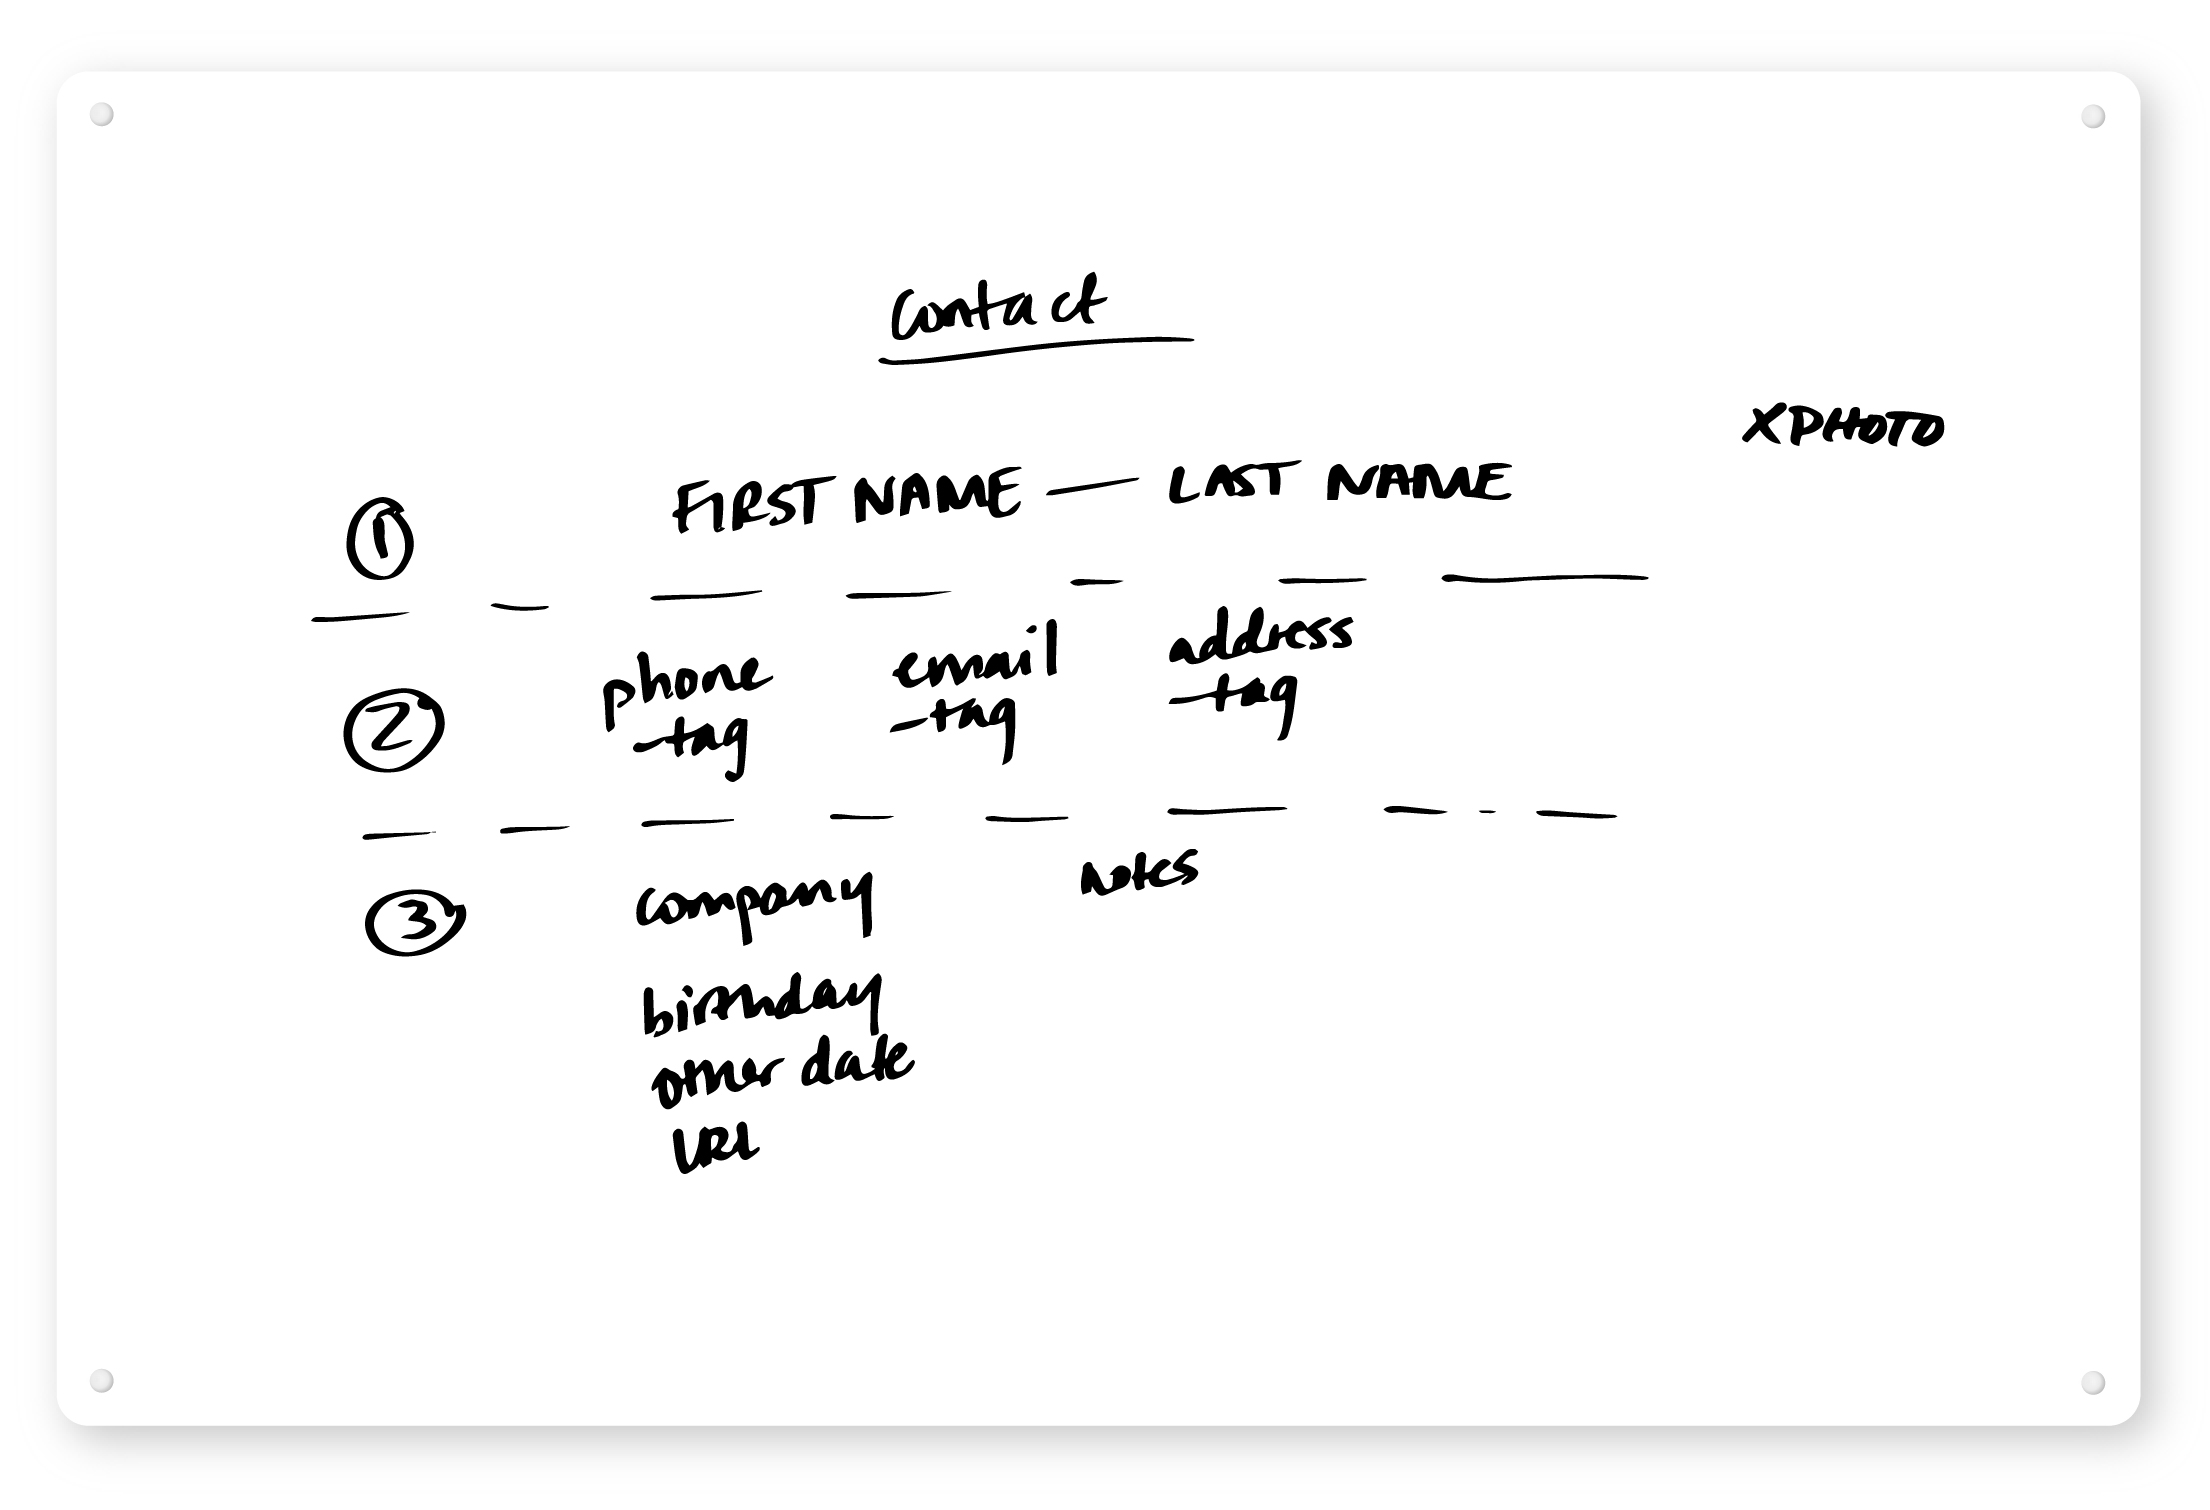 Contact
XPHOTO
① FIRST NAME — LAST NAME
② phone email address
-tag -tag -tag
③ company notes
birthday
other date
URL